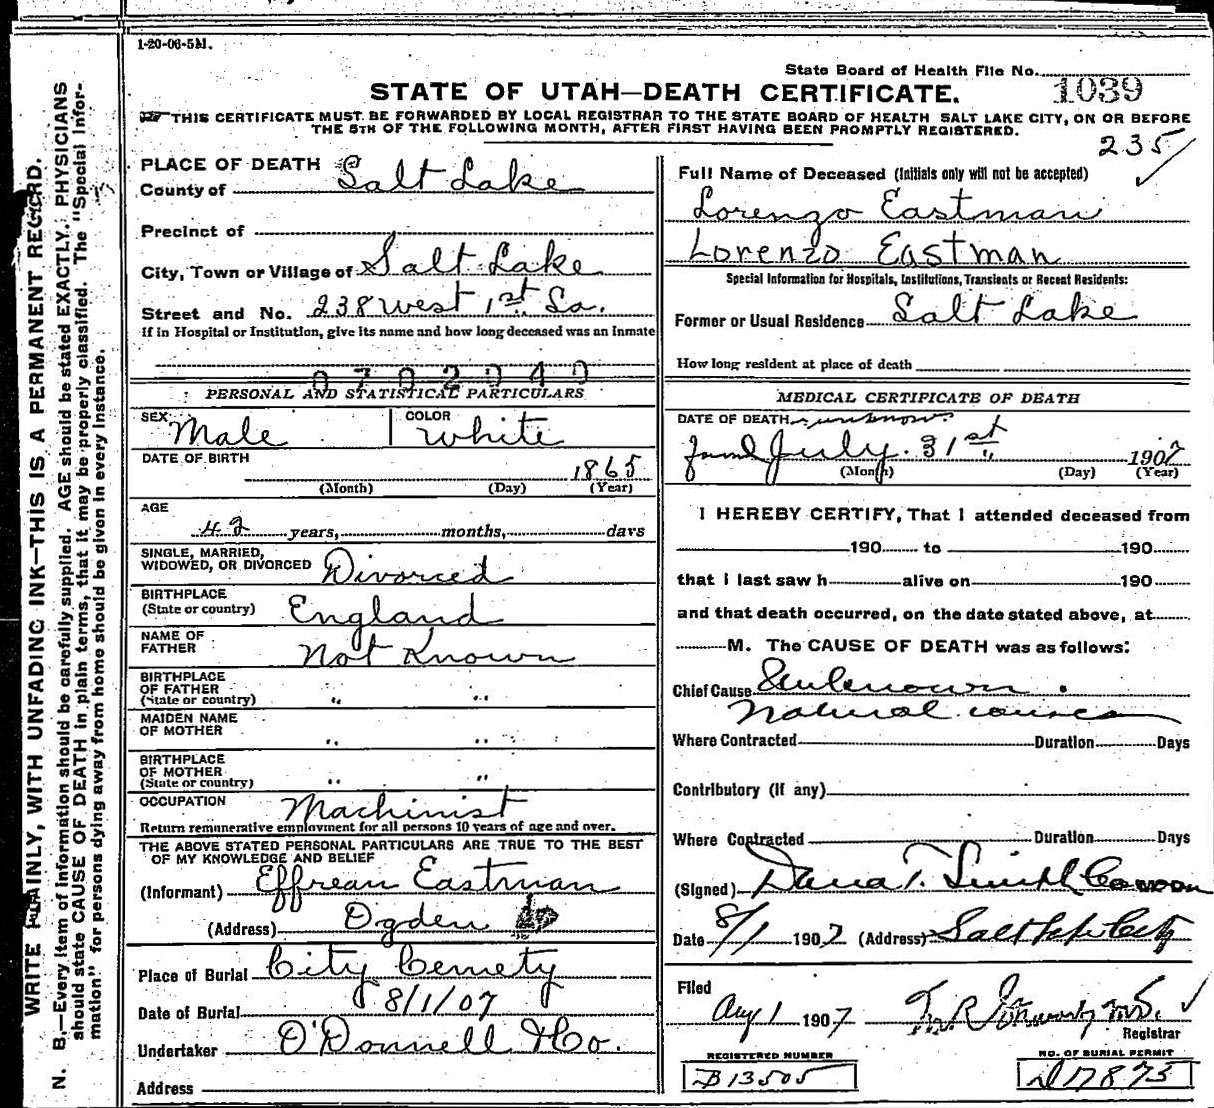 1-20-06-5M.
State Board of Health File No. 1039
STATE OF UTAH—DEATH CERTIFICATE.
THIS CERTIFICATE MUST BE FORWARDED BY LOCAL REGISTRAR TO THE STATE BOARD OF HEALTH SALT LAKE CITY, ON OR BEFORE
THE 5TH OF THE FOLLOWING MONTH, AFTER FIRST HAVING BEEN PROMPTLY REGISTERED.
235
WRITE PLAINLY, WITH UNFADING INK—THIS IS A PERMANENT RECORD.
N. B.—Every item of information should be carefully supplied. AGE should be stated EXACTLY. PHYSICIANS
should state CAUSE OF DEATH in plain terms, that it may be properly classified. The "Special Infor-
mation" for persons dying away from home should be given in every instance.
PLACE OF DEATH
County of Salt Lake
Precinct of
City, Town or Village of Salt Lake
Street and No. 238 West 1st So.
If in Hospital or Institution, give its name and how long deceased was an Inmate
PERSONAL AND STATISTICAL PARTICULARS
SEX Male COLOR White
DATE OF BIRTH
1865
(Month) (Day) (Year)
AGE
42 years, months, days
SINGLE, MARRIED,
WIDOWED, OR DIVORCED Divorced
BIRTHPLACE
(State or country) England
NAME OF
FATHER Not Known
BIRTHPLACE
OF FATHER
(State or country) " "
MAIDEN NAME
OF MOTHER " "
BIRTHPLACE
OF MOTHER
(State or country) " "
OCCUPATION Machinist
Return remunerative employment for all persons 10 years of age and over.
THE ABOVE STATED PERSONAL PARTICULARS ARE TRUE TO THE BEST
OF MY KNOWLEDGE AND BELIEF
(Informant) Effrean Eastman
(Address) Ogden
Place of Burial City Cemety
Date of Burial 8/1/07
Undertaker O'Donnell & Co.
Address
Full Name of Deceased (Initials only will not be accepted)
Lorenzo Eastman
Lorenzo Eastman
Special Information for Hospitals, Institutions, Transients or Recent Residents:
Former or Usual Residence Salt Lake
How long resident at place of death
MEDICAL CERTIFICATE OF DEATH
DATE OF DEATH unknown
found July 31st 1907
(Month) (Day) (Year)
I HEREBY CERTIFY, That I attended deceased from
190 to 190
that I last saw h alive on 190
and that death occurred, on the date stated above, at
M. The CAUSE OF DEATH was as follows:
Chief Cause Unknown.
Natural causes
Where Contracted Duration Days
Contributory (If any)
Where Contracted Duration Days
(Signed) Dana T. Smith
Date 8/1 1907 (Address) Salt Lake City
Filed
Aug 1 1907
Registrar
REGISTERED NUMBER
B13505
NO. OF BURIAL PERMIT
D17873